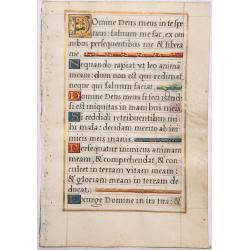 Domine Deus meus in te spe
raui: saluum me fac, ex om
nibus persequentibus me & libera
me.
Nequando rapiat vt leo animã
meam: dum non est qui redimat,
neque qui saluum faciat.
Domine Deus meus si feci istud: si
si est iniquitas in manibus meis.
Si reddidi retribuentibus mi
hi mala: decidam merito ab ini
micis meis inanis.
Persequatur inimicus animam
meam, & comprehendat, & con
culcet in terram vitam meam:
& gloriam meam in terram de
ducat.
Exurge Domine in ira tua: &